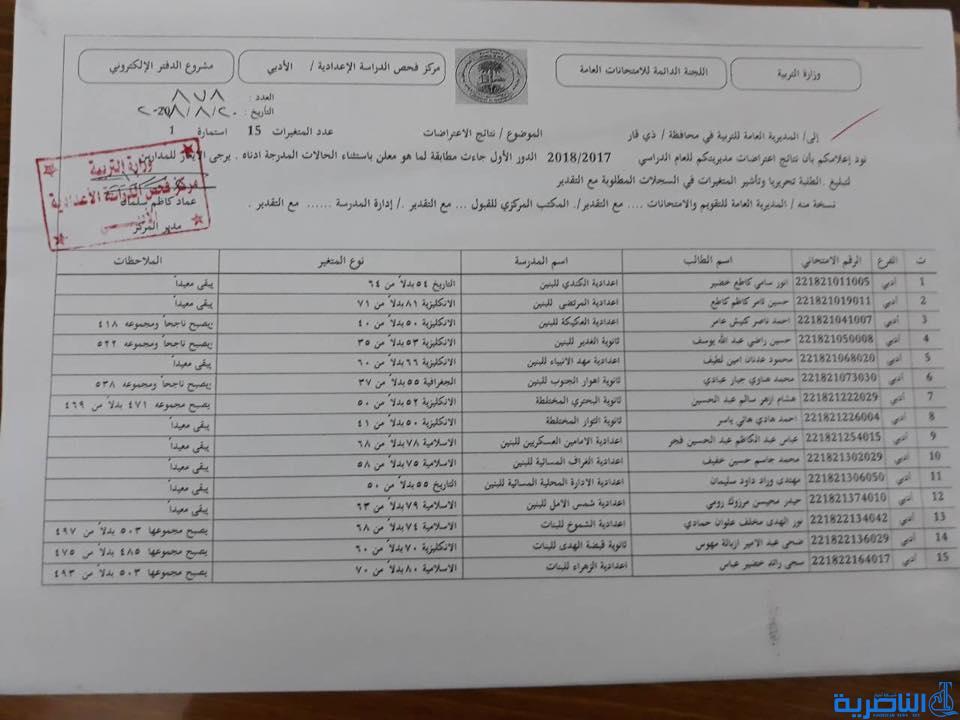 وزارة التربية
اللجنة الدائمة للامتحانات العامة
مركز فحص الدراسة الإعدادية / الأدبي
مشروع الدفتر الإلكتروني
العدد : ٨٧٨
التاريخ : ٢٠١٨/٨/٢٠
إلى / المديرية العامة للتربية في محافظة / ذي قار الموضوع / نتائج الاعتراضات عدد المتغيرات 15 استمارة 1
نود إعلامكم بأن نتائج اعتراضات مديريتكم للعام الدراسي 2018/2017 الدور الأول جاءت مطابقة لما هو معلن باستثناء الحالات المدرجة ادناه . يرجى الايعاز للمدارس
لتبليغ الطلبة تحريريا وتأشير المتغيرات في السجلات المطلوبة مع التقدير
نسخة منه / المديرية العامة للتقويم والامتحانات .... مع التقدير/. المكتب المركزي للقبول ... مع التقدير ./ إدارة المدرسة ...... مع التقدير .
وزارة التربية
مركز فحص الدراسة الأعدادية
عماد كاظم سلمان
مدير المركز
ت الفرع الرقم الامتحاني اسم الطالب اسم المدرسة نوع المتغير الملاحظات
1 أدبي 221821011005 انور سامي كاطع خضير اعدادية الكندي للبنين التاريخ ٥٤ بدلاً من ٦٤ يبقى معيداً
2 أدبي 221821019011 حسين ثامر كاظم كاطع اعدادية المرتضى للبنين الانكليزية ٨١ بدلاً من ٧١ يبقى معيداً
3 أدبي 221821041007 احمد ناصر كنيش عامر اعدادية العكيكة للبنين الانكليزية ٥٠ بدلاً من ٤٠ يصبح ناجحاً ومجموعه ٤١٨
4 أدبي 221821050008 حسين راضي عبد الله يوسف ثانوية الغدير للبنين الانكليزية ٥٣ بدلاً من ٣٥ يصبح ناجحاً ومجموعه ٥٢٢
5 أدبي 221821068020 محمود عدنان امين لطيف اعدادية مهد الانبياء للبنين الانكليزية ٦٦ بدلاً من ٦٠ يبقى معيداً
6 أدبي 221821073030 محمد هناوي جبار عبادي ثانوية اهوار الجنوب للبنين الجغرافية ٥٥ بدلاً من ٣٧ يصبح ناجحاً ومجموعه ٥٣٨
7 أدبي 221821222029 هشام ازهر سالم عبد الحسين ثانوية البحتري المختلطة الانكليزية ٥٢ بدلاً من ٥٠ يصبح مجموعه ٤٧١ بدلاً من ٤٦٩
8 أدبي 221821226004 احمد هادي هاني ياسر ثانوية الثوار المختلطة الانكليزية ٥٠ بدلاً من ٤١ يبقى معيداً
9 أدبي 221821254015 عباس عبد الكاظم عبد الحسين فجر اعدادية الامامين العسكريين للبنين الاسلامية ٧٨ بدلاً من ٦٨ يبقى معيداً
10 أدبي 221821302029 محمد جاسم حسين خفيف اعدادية الغراف المسائية للبنين الاسلامية ٧٥ بدلاً من ٥٨ يبقى معيداً
11 أدبي 221821306050 مهتدي وراد داود سليمان اعدادية الادارة المحلية المسائية للبنين التاريخ ٥٥ بدلاً من ٥٠ يبقى معيداً
12 أدبي 221821374010 حيدر محيسن مرزوك رومي اعدادية شمس الامل للبنين الاسلامية ٧٩ بدلاً من ٦٣ يبقى معيداً
13 أدبي 221822134042 نور الهدى مخلف علوان حمادي اعدادية الشموخ للبنات الاسلامية ٧٤ بدلاً من ٦٨ يصبح مجموعها ٥٠٣ بدلاً من ٤٩٧
14 أدبي 221822136029 ضحى عبد الامير ازبالة مهوس ثانوية قبضة الهدى للبنات الانكليزية ٧٠ بدلاً من ٦٠ يصبح مجموعها ٤٨٥ بدلاً من ٤٧٥
15 أدبي 221822164017 سجى رائد خضير عباس اعدادية الزهراء للبنات الاسلامية ٨٠ بدلاً من ٧٠ يصبح مجموعها ٥٠٣ بدلاً من ٤٩٣
الناصرية